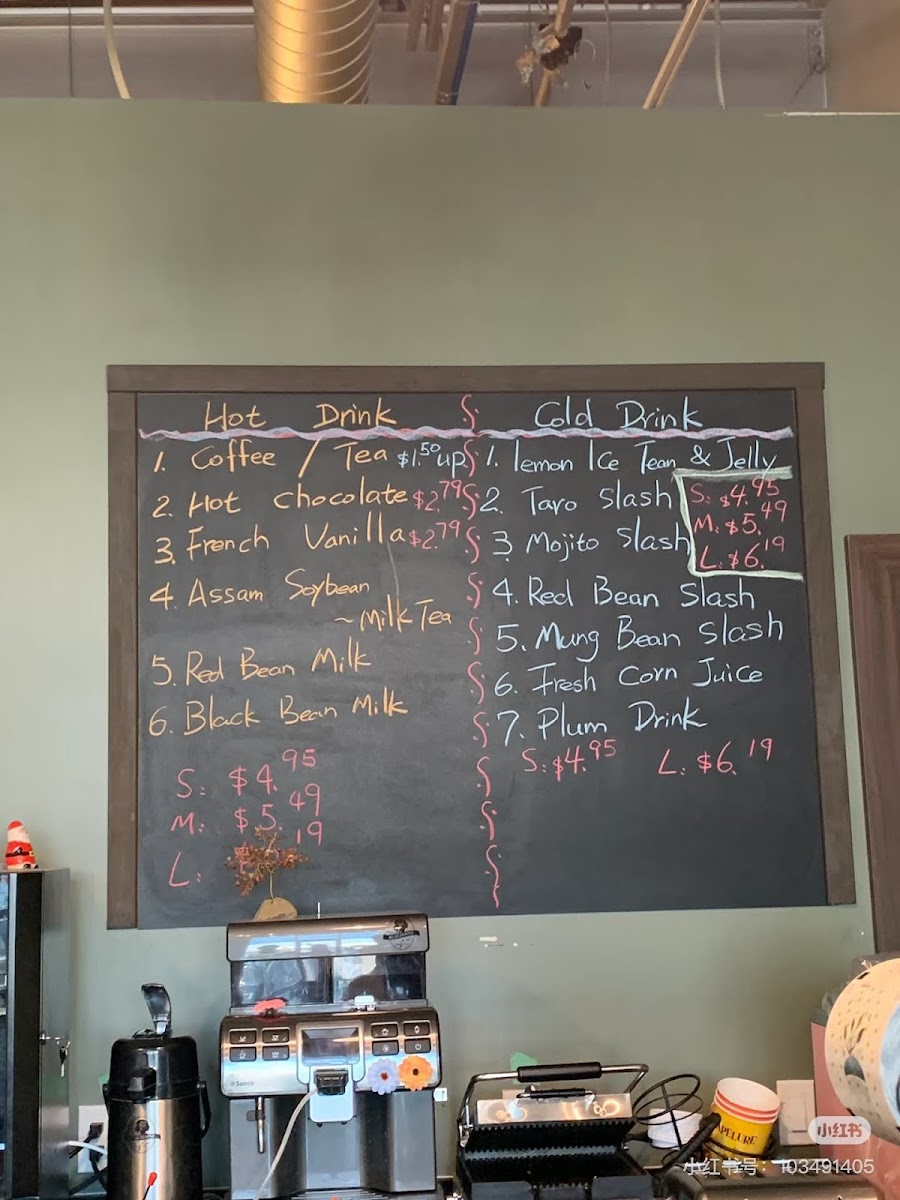 Hot Drink
1. Coffee / Tea $1.50 up
2. Hot chocolate $2.79
3. French Vanilla $2.79
4. Assam Soybean
~Milk Tea
5. Red Bean Milk
6. Black Bean Milk
S: $4.95
M: $5.49
L: 19
Cold Drink
1. lemon Ice Tean & Jelly
2. Taro Slash
3 Mojito Slash
S: $4.95
M: $5.49
L: $6.19
4. Red Bean Slash
5. Mung Bean Slash
6. Fresh Corn Juice
7. Plum Drink
S: $4.95 L: $6.19
Saeco
APELURE
小红书
小红书号: 103491405